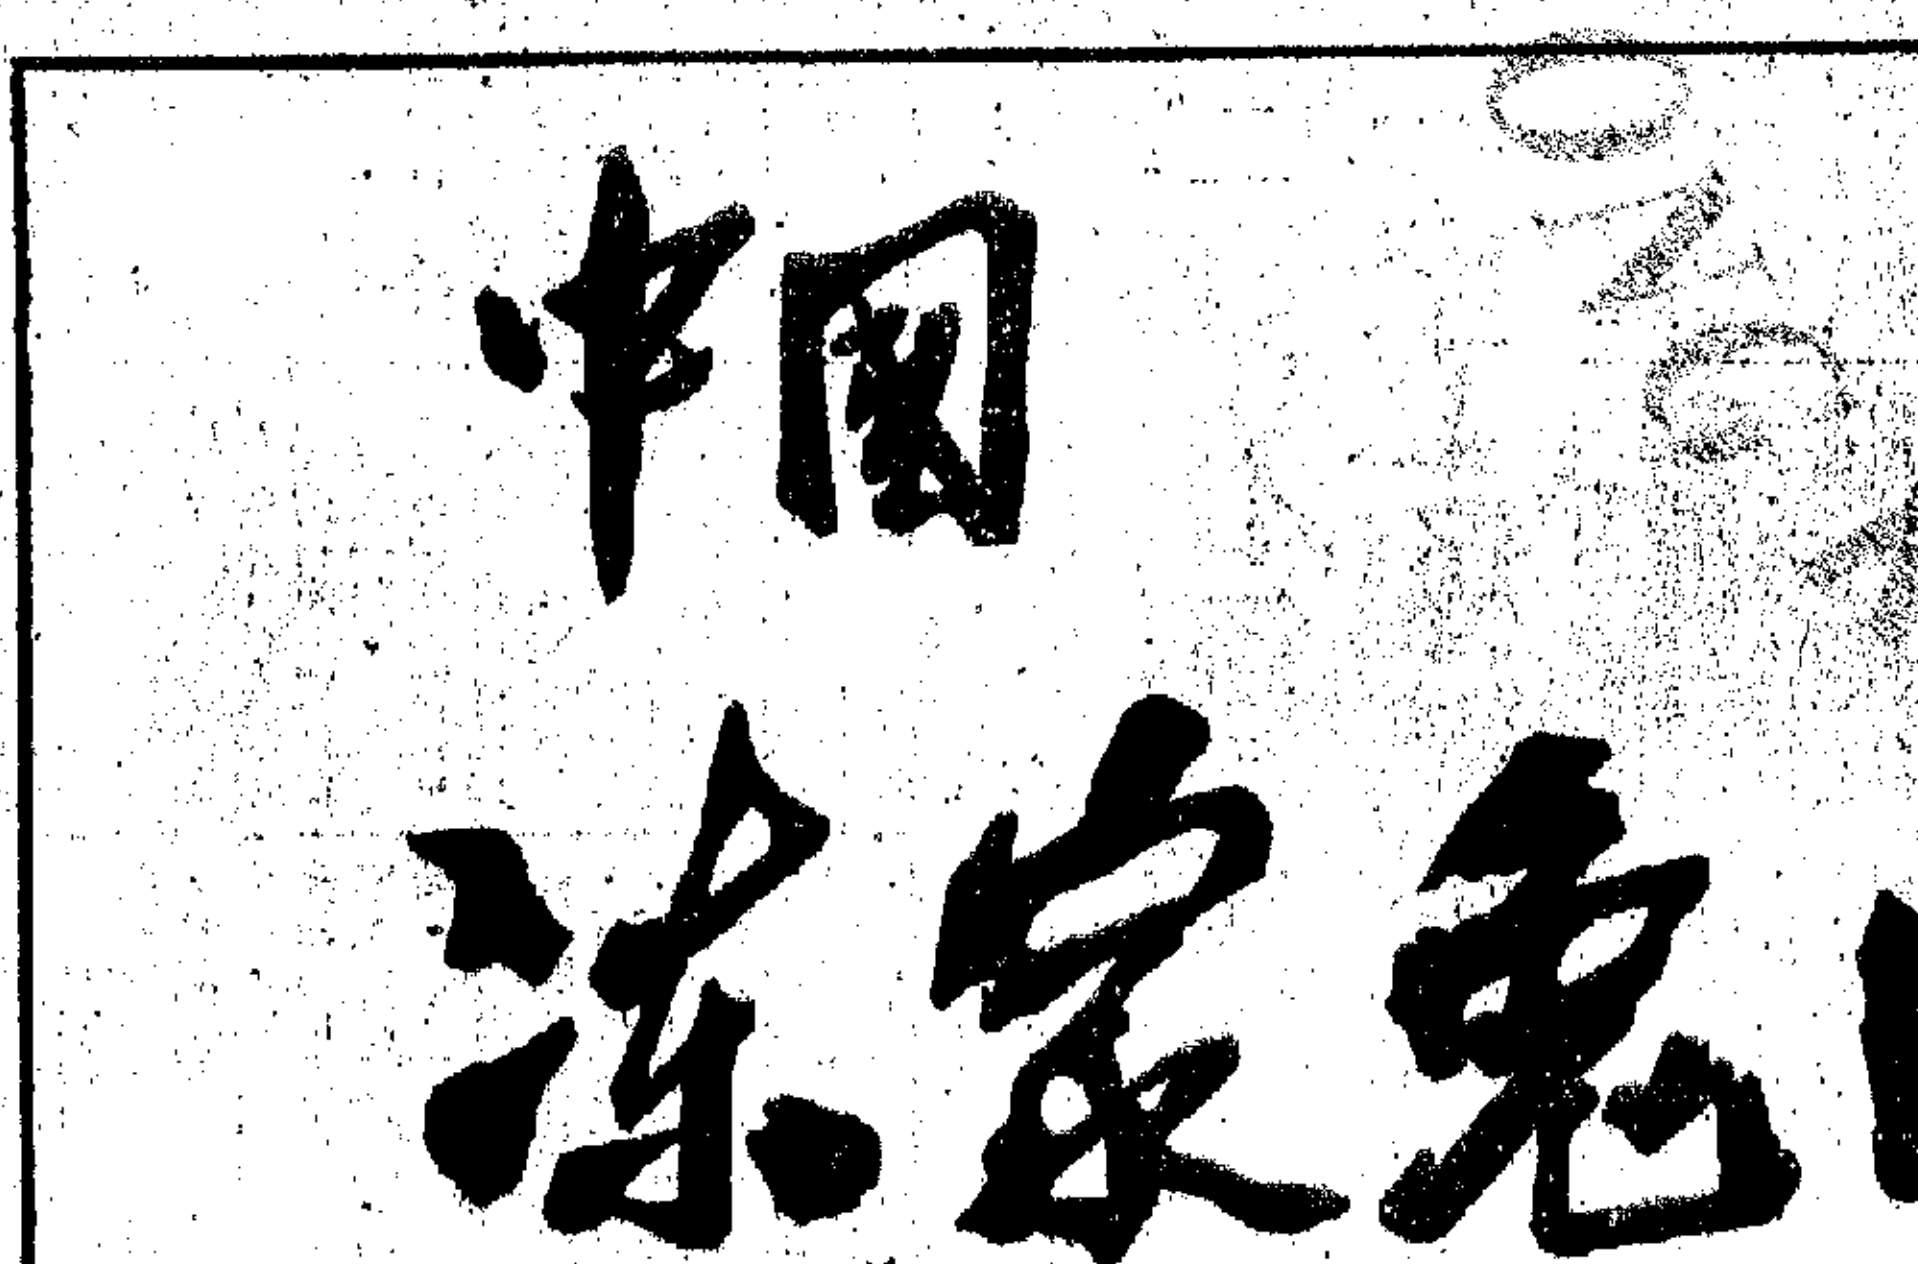 中国
冻家兔